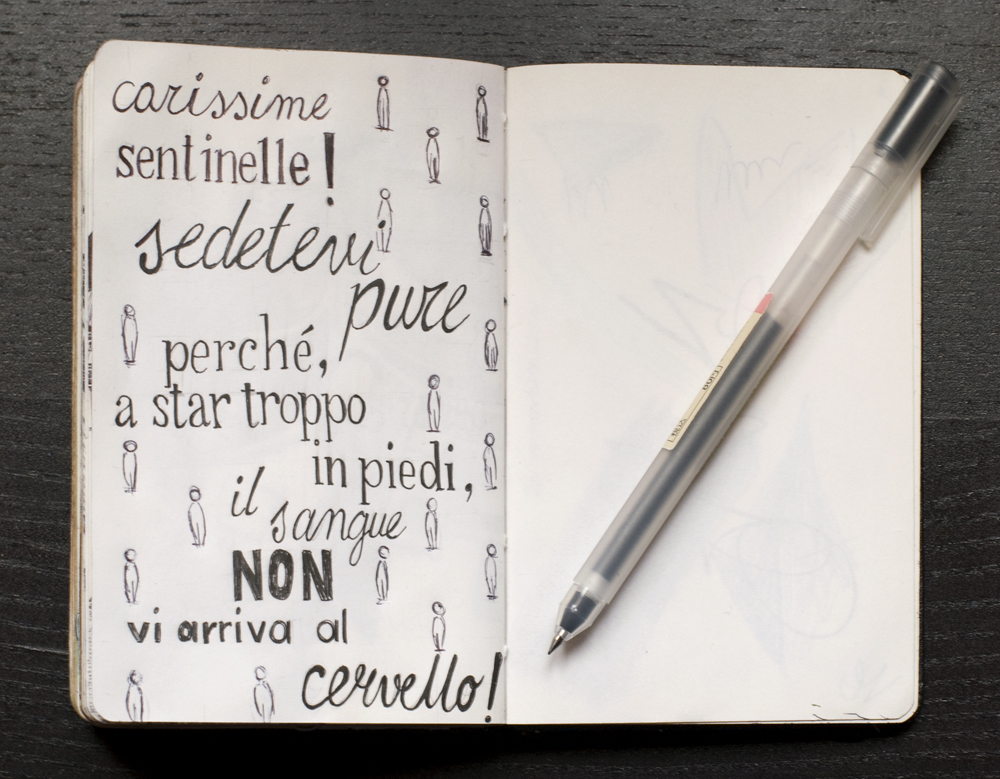 carissime
sentinelle!
sedetevi
pure
perché,
a star troppo
in piedi,
il
sangue
NON
vi arriva al
cervello!